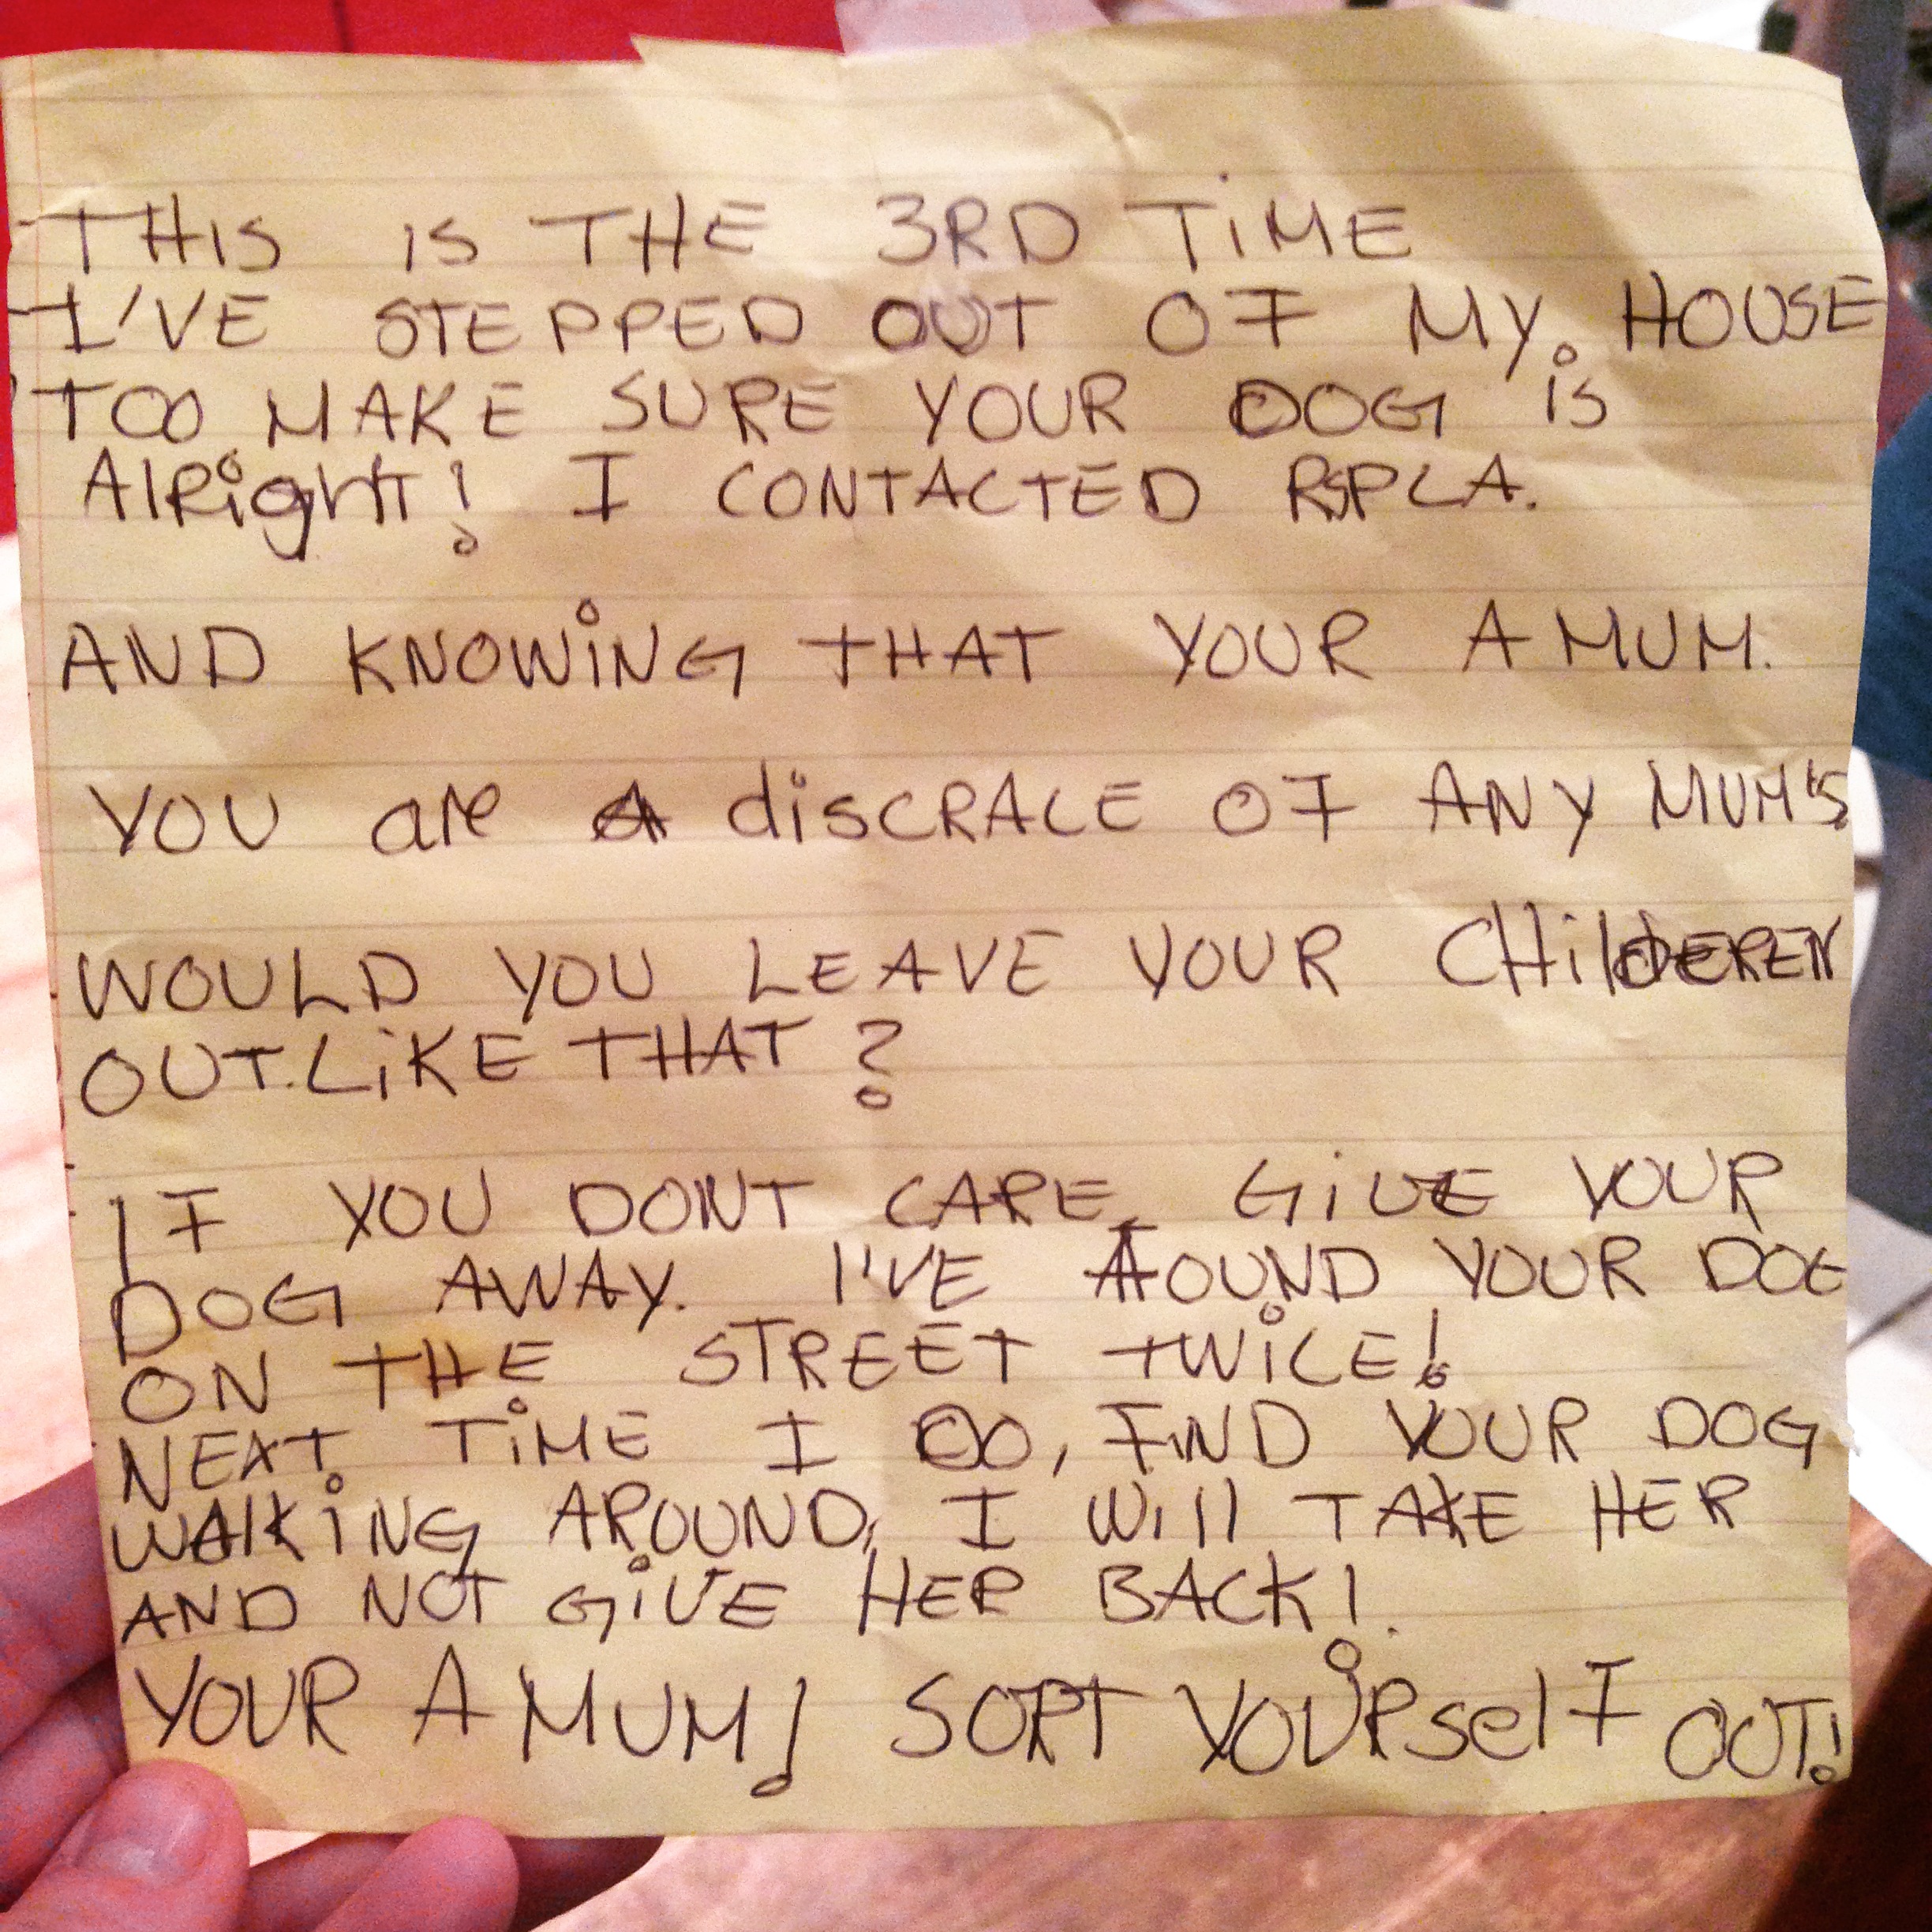 THIS IS THE 3RD TIME
I'VE STEPPED OUT OF MY. HOUSE
TOO MAKE SURE YOUR DOG IS
AlRighT! I CONTACTED RSPCA.
AND KNOWING THAT YOUR A MUM.
YOU are A disCRACE OF ANY MUM'S
WOULD YOU LEAVE YOUR CHilDEREN
OUT.LIKE THAT?
IF YOU DONT CARE, GIVE YOUR
DOG AWAY. I'VE FOUND YOUR DOG
ON THE STREET TWICE!
NEXT TIME I DO, FIND YOUR DOG
WAlKING AROUND, I Will TAKE HER
AND NOT GIVE HER BACK!.
YOUR A MUM! SORT YOURself OUT!